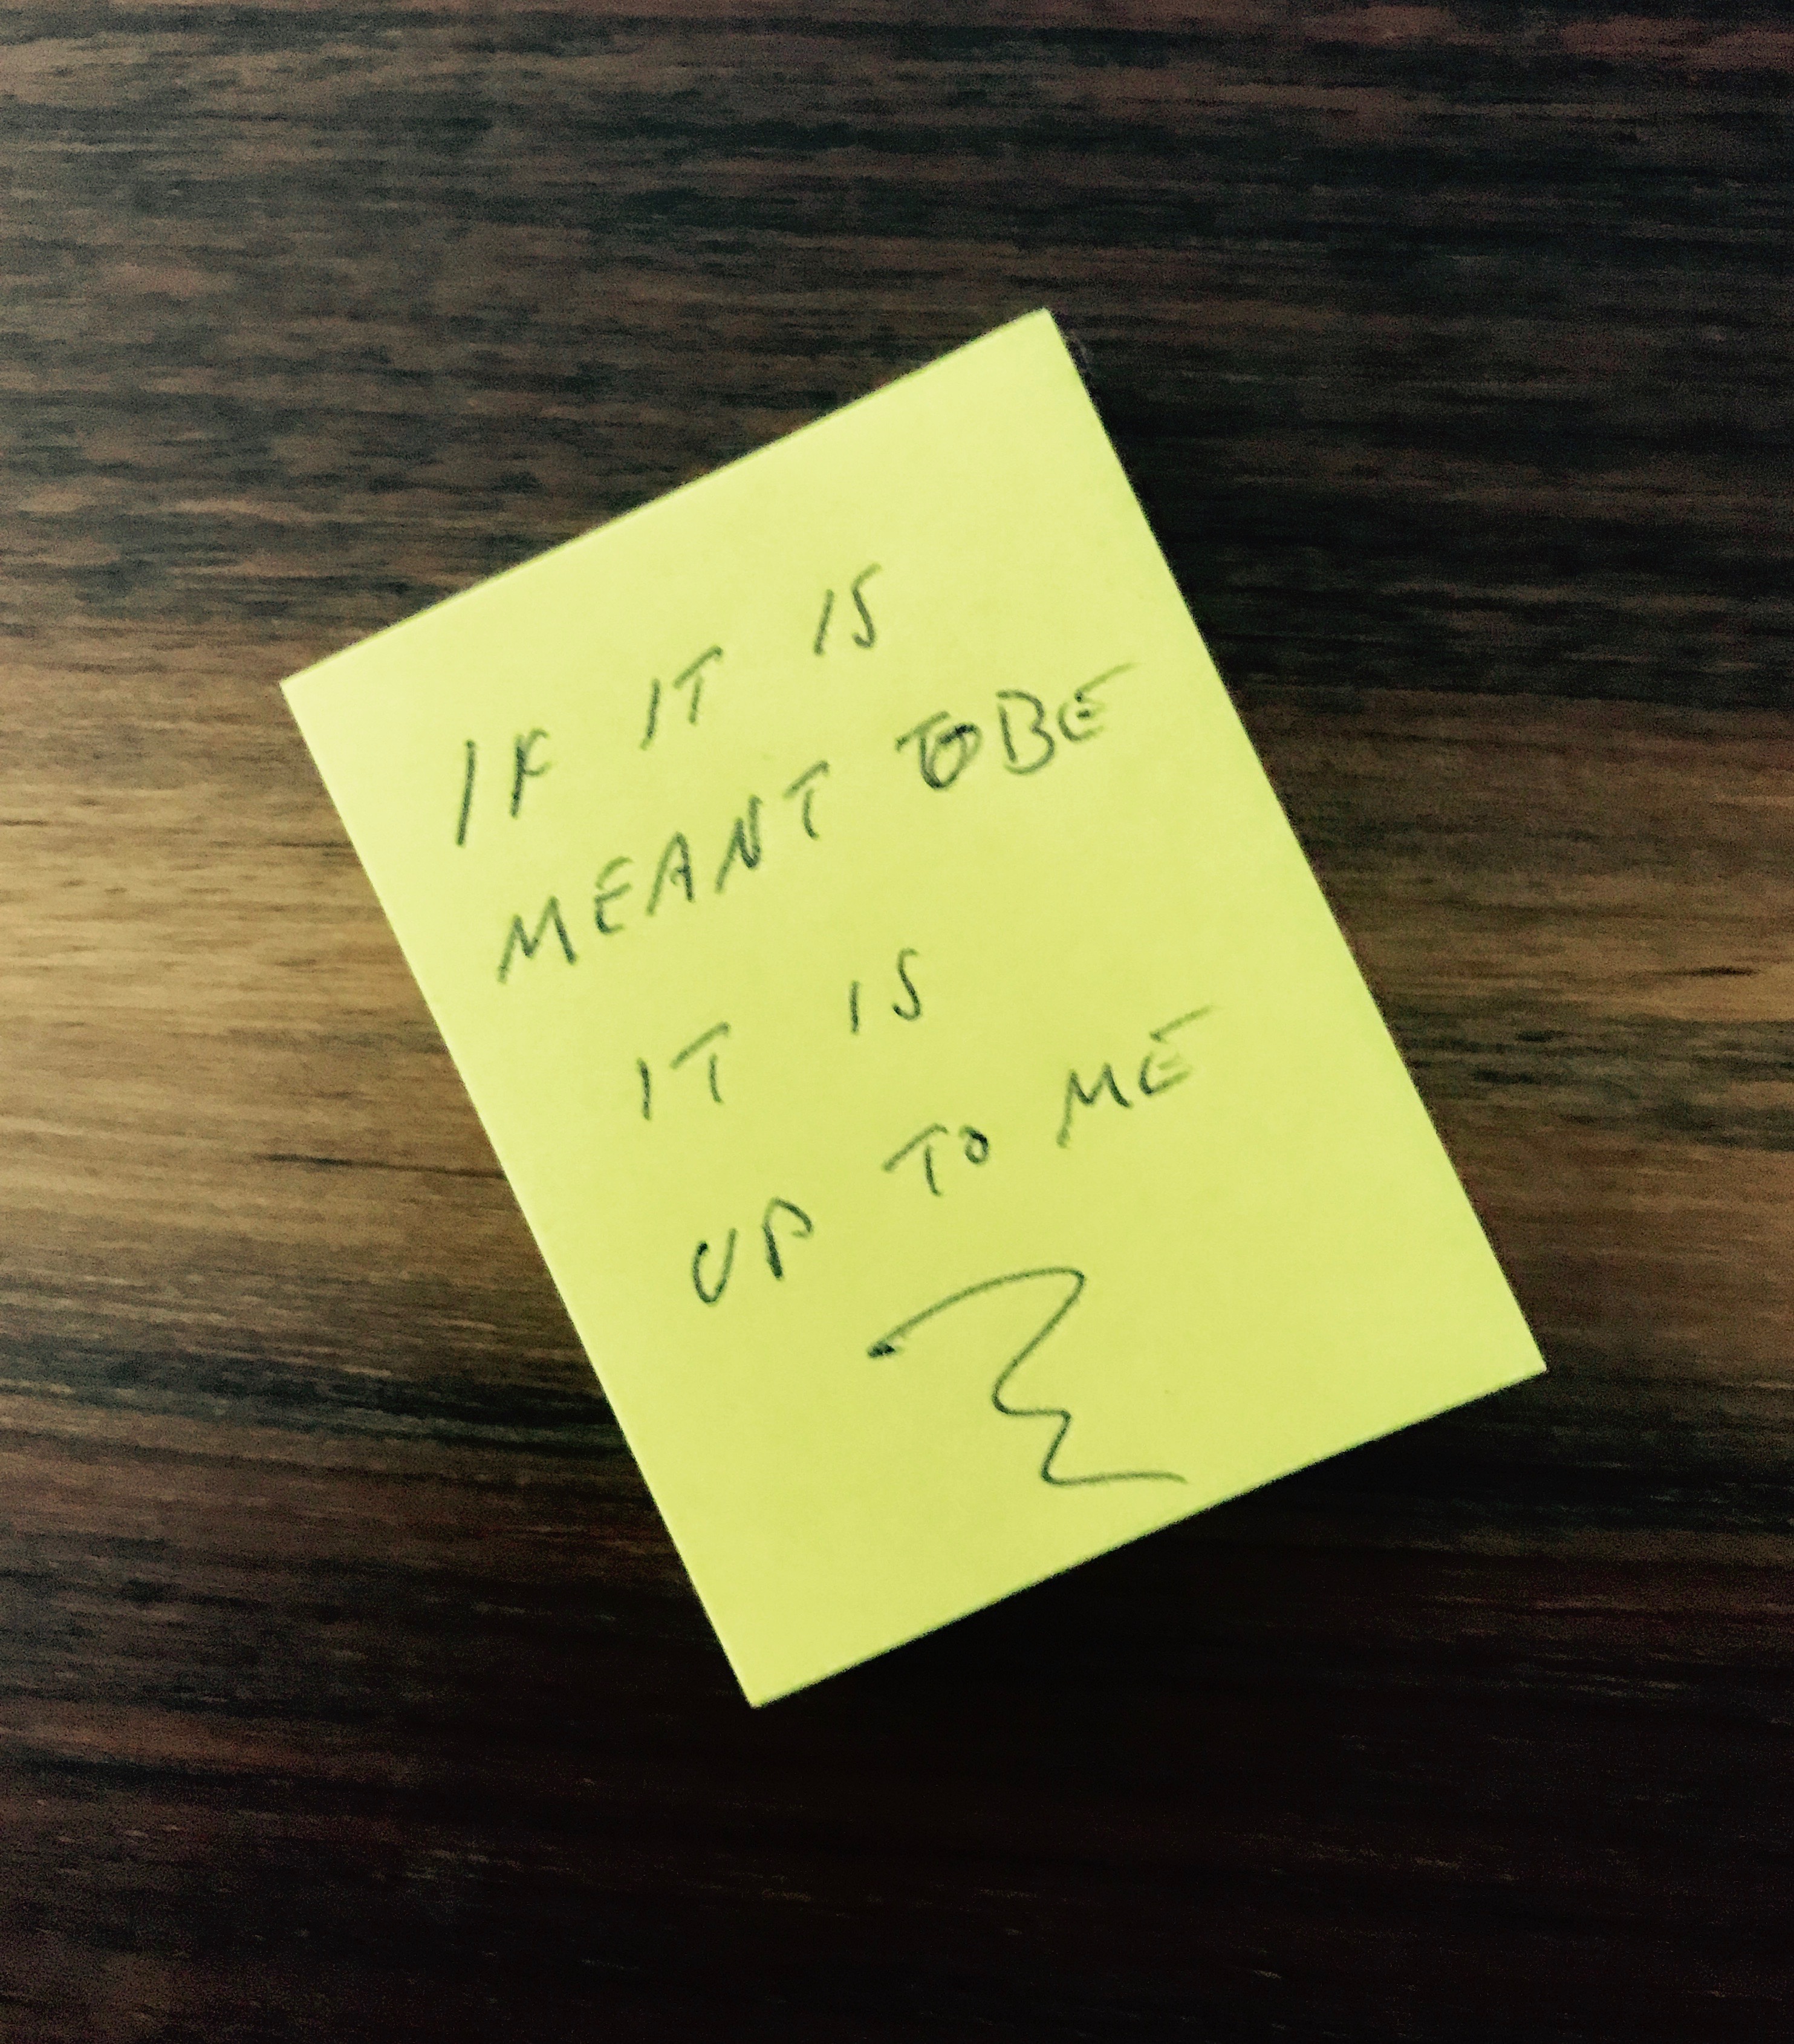 IF IT IS
MEANT TO BE
IT IS
UP TO ME